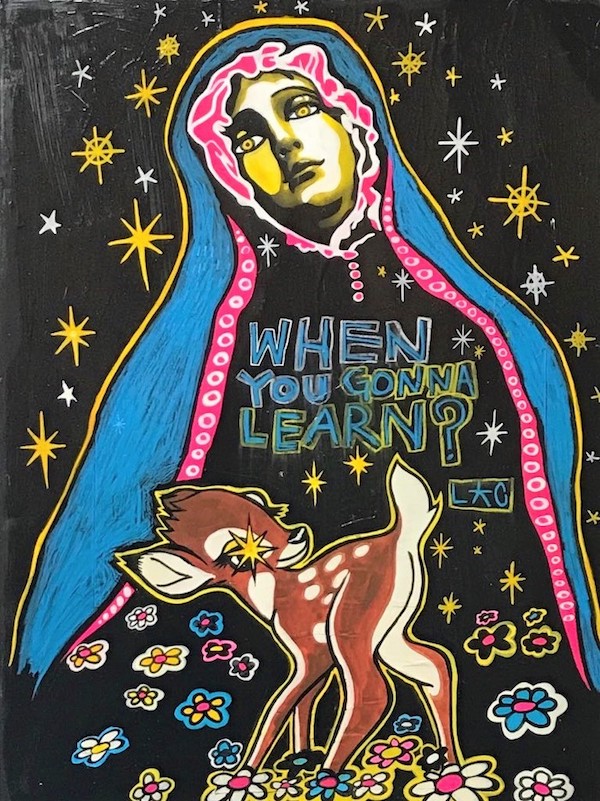 WHEN
YOU GONNA
LEARN?
L★C